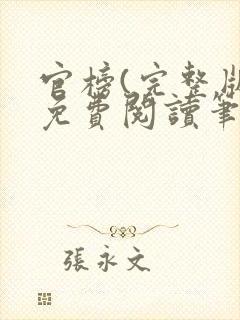 官榜(完整版
免費閱讀筆
張永文